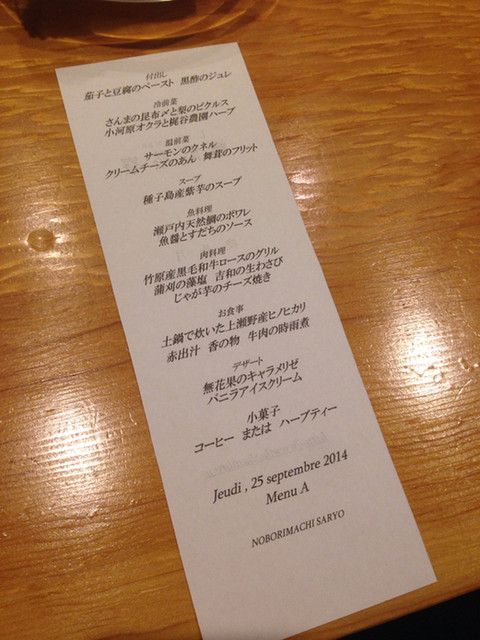 付出し
茄子と豆腐のペースト 黒酢のジュレ
冷前菜
さんまの昆布〆と梨のピクルス
小河原オクラと梶谷農園ハーブ
温前菜
サーモンのクネル
クリームチーズのあん 舞茸のフリット
スープ
種子島産紫芋のスープ
魚料理
瀬戸内天然鯛のポワレ
魚醤とすだちのソース
肉料理
竹原産黒毛和牛ロースのグリル
蒲刈の藻塩 吉和の生わさび
じゃが芋のチーズ焼き
お食事
土鍋で炊いた上瀬野産ヒノヒカリ
赤出汁 香の物 牛肉の時雨煮
デザート
無花果のキャラメリゼ
バニラアイスクリーム
小菓子
コーヒー または ハーブティー
Jeudi , 25 septembre 2014
Menu A
NOBORIMACHI SARYO